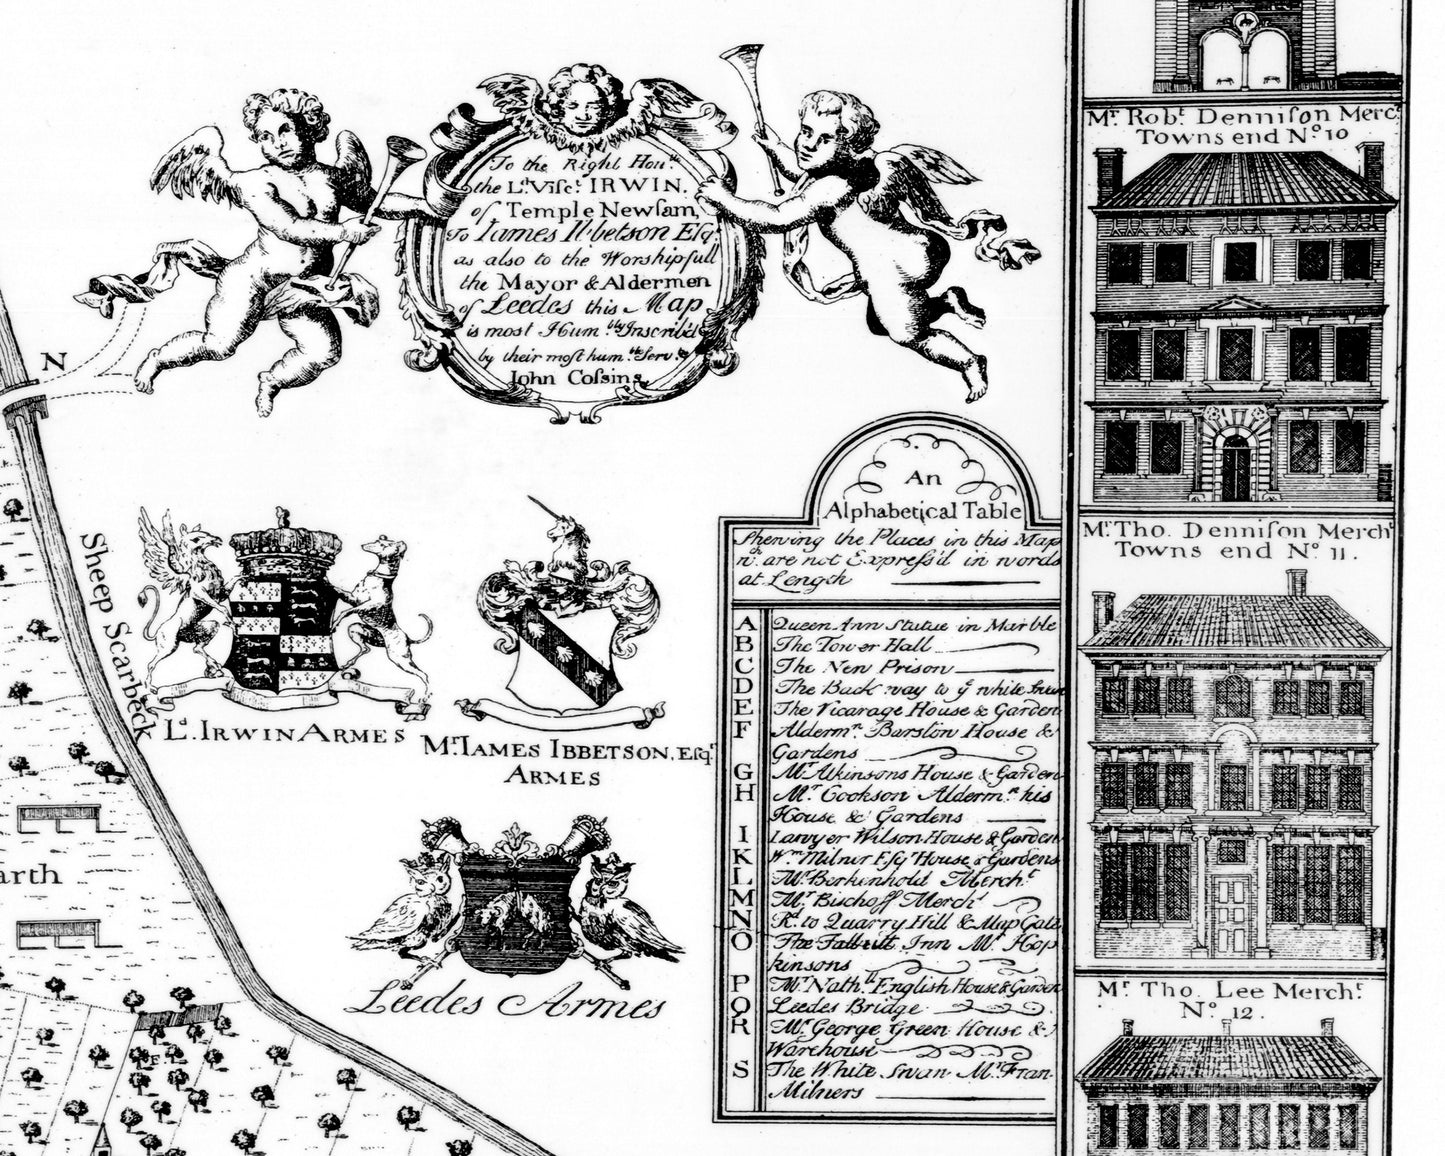 To the Right Hon.ble
the L.d Viſc.t IRWIN.
of Temple Newſam,
To Iames Ibbetson Eſq.r
as also to the Worshipfull
the Mayor & Aldermen
of Leedes this Map
is most Hum.bly Inscrib'd
by their moſt hum.ble Serv.t
John Coſsins
N
Sheep Scarbeck
L.d IRWIN ARMES
M.r IAMES IBBETSON, Eſq.r
ARMES
Leedes Armes
arth
F
An
Alphabetical Table
Shewing the Places in this Map
w.ch are not Expreſs'd in words
at Length
A Queen Ann Statue in Marble
B The Tower Hall
C The New Prison
D The Back way to ye white
E The Vicarage House & Garden
F Alderm.n Barstow House &
Gardens
G M.r Atkinsons House & Garden
H M.r Cookson Alderm.n his
House & Gardens
I Lawyer Wilson House & Garden
K W.m Milner Eſq House & Gardens
L M.r Berkenhold Merch.t
M M.r Bischoff Merch.t
N R.d to Quarry Hill & Map Gate
O The Talbutt Inn M.r Hop
kinsons
P M.r Nath.ll English House & Garden
Q Leedes Bridge
R M.r George Green House &
Warehouse
S The White Swan M.r Fran
Milners
M.r Rob.t Denniſon Merc.t
Towns end No 10
M.r Tho. Denniſon Merch.t
Towns end No 11.
M.r Tho. Lee Merch.t
No 12.